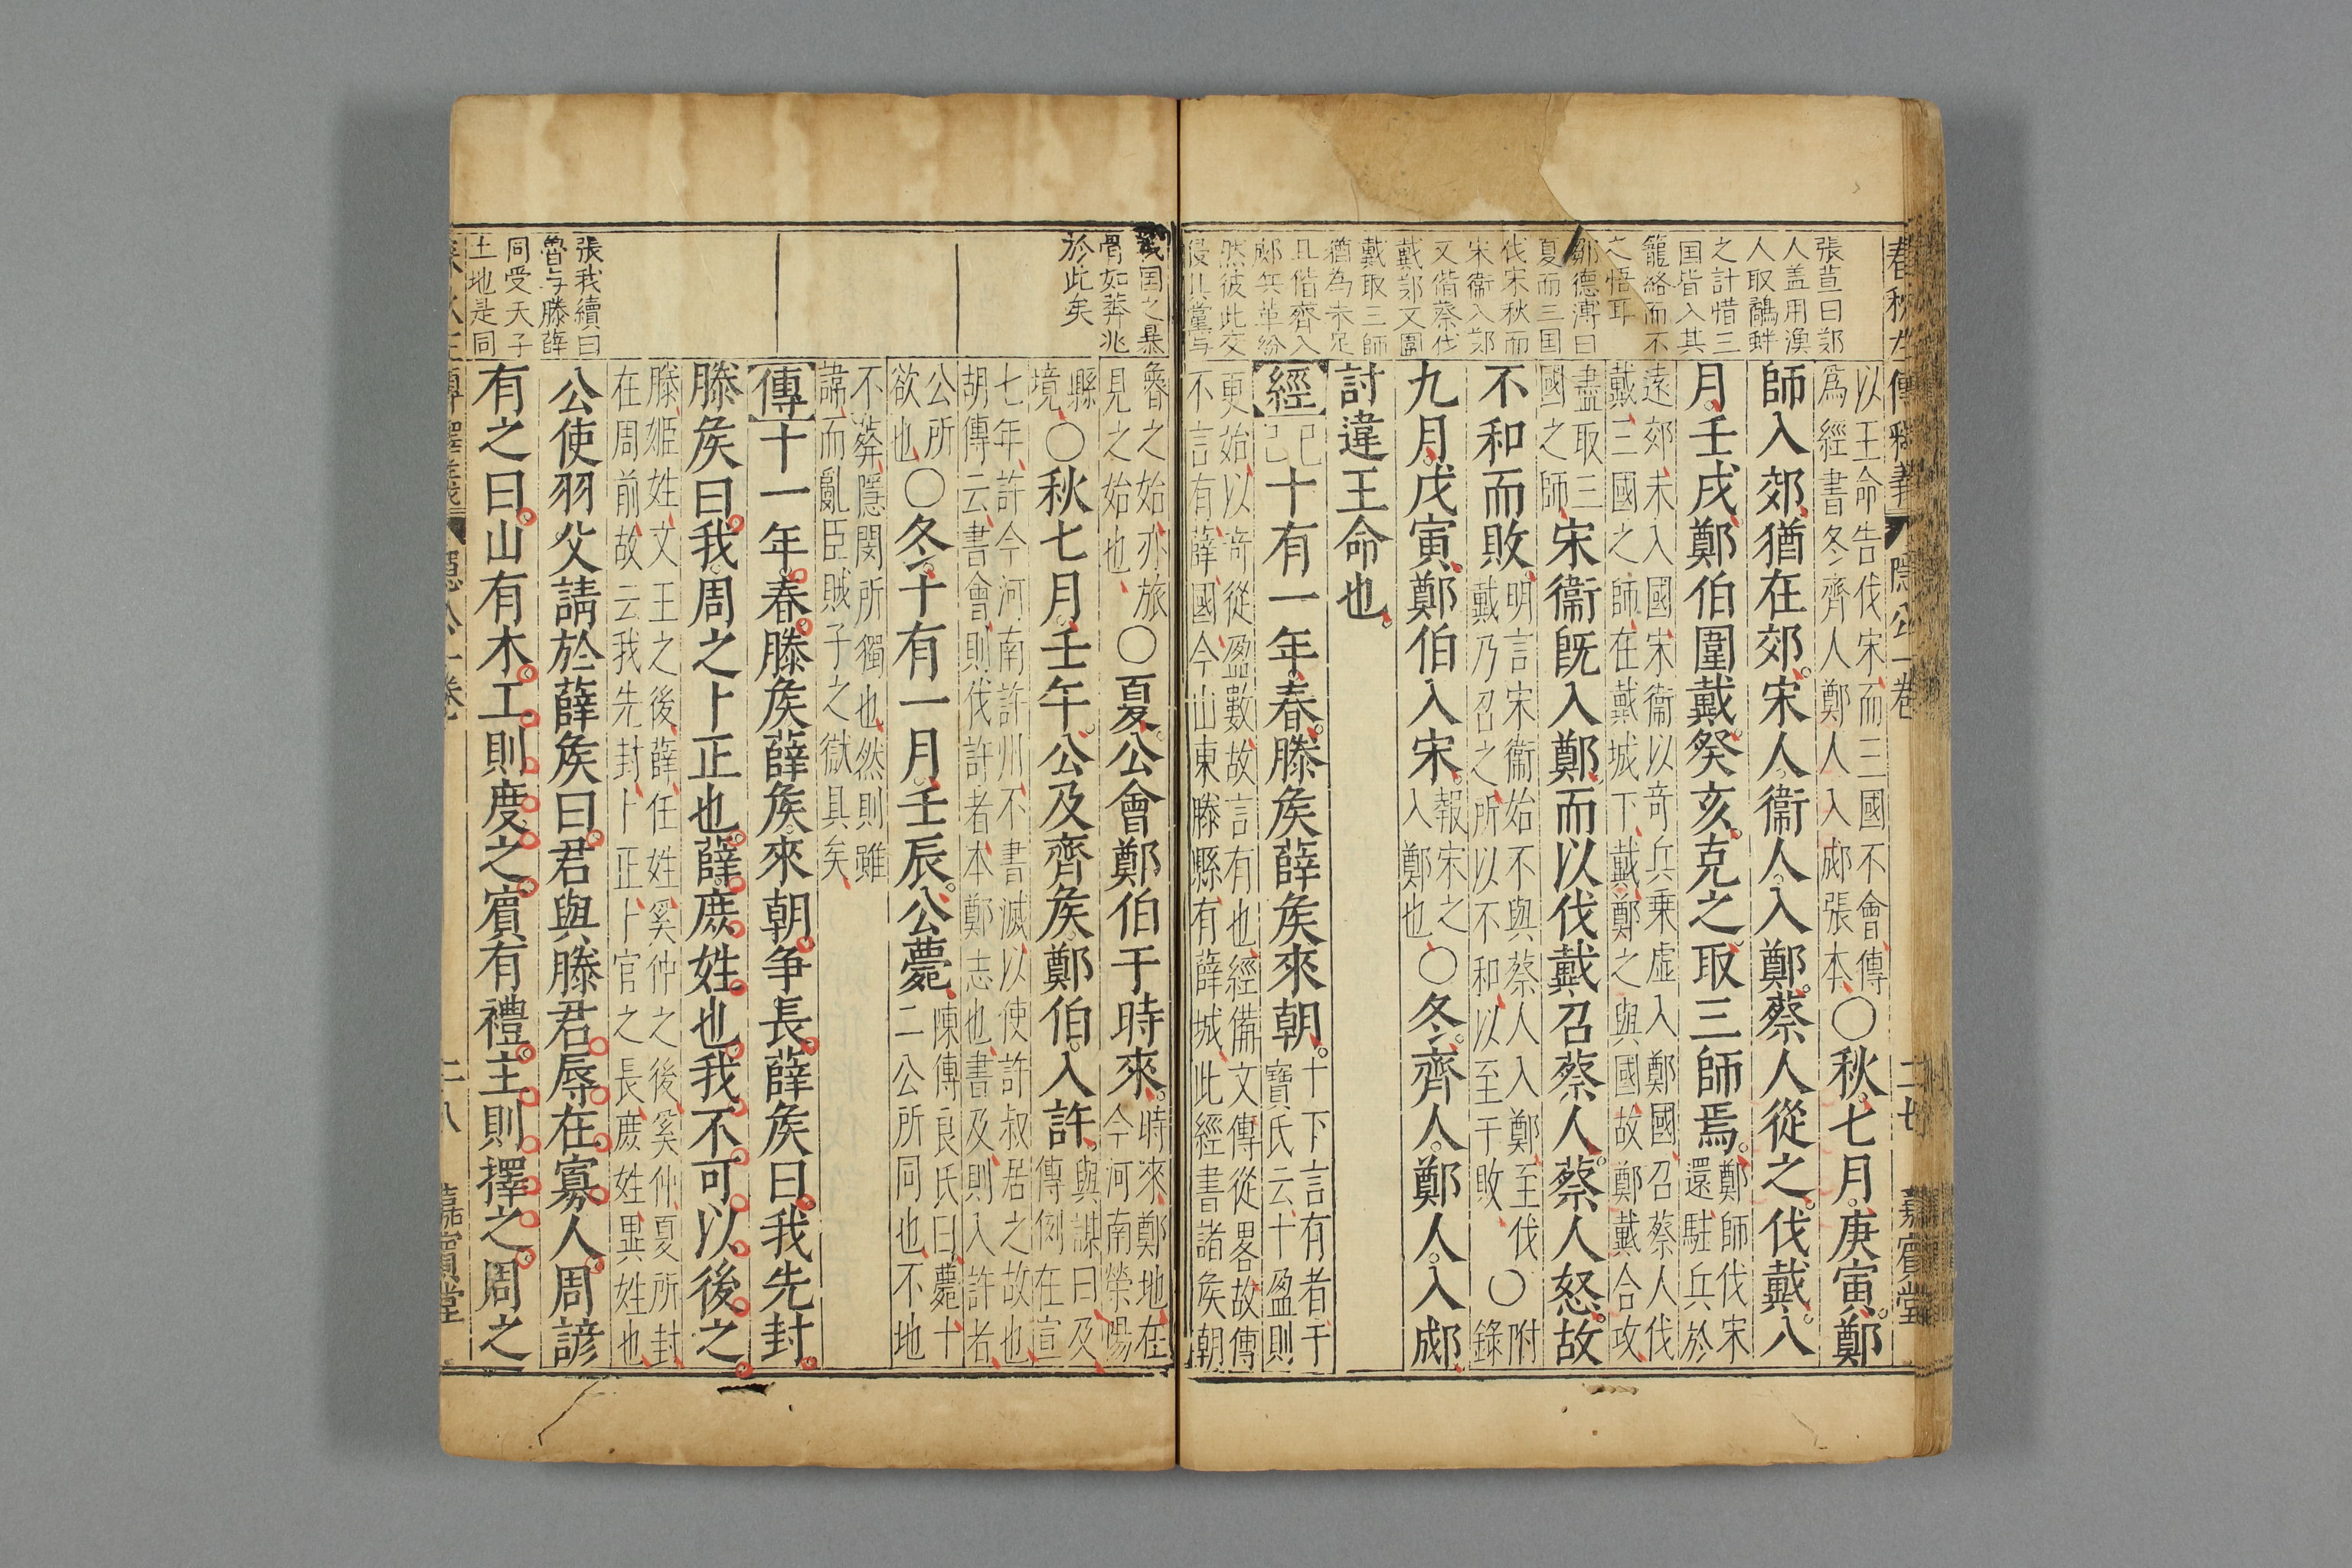 春秋左傳釋義 隱公一卷 二十七 嘉賓堂
張萱曰郊
人盖用漁
人取鷸蚌
之計惜三
国皆入其
籠絡而不
之悟耳
鄭德溥曰
夏而三国
伐宋秋而
宋衞入郊
又偕蔡伐
戴郊又圍
戴取三師
猶為未足
且偕齊入
郕兵革紛
然彼此交
侵其黨与
以王命告伐宋而三國不會傳
爲經書冬齊人鄭人入郕張本
〇秋七月庚寅鄭
師入郊猶在郊宋人衞人入鄭蔡人從之伐戴八
月壬戌鄭伯圍戴癸亥克之取三師焉
鄭師伐宋
還駐兵於
遠郊未入國宋衞以奇兵乗虛入鄭國召蔡人伐
戴三國之師在戴城下戴鄭之與國故鄭戴合攻
盡取三
國之師
宋衞既入鄭而以伐戴召蔡人蔡人怒故
不和而敗
明言宋衞始不與蔡人入鄭至伐
戴乃召之所以不和以至于敗
〇
附
錄
九月戊寅鄭伯入宋
報宋之
入鄭也
〇冬齊人鄭人入郕
討違王命也
經
己
巳
十有一年春滕矦薛矦來朝
十下言有者于
寶氏云十盈則
更始以竒從盈數故言有也經備文傳從畧故傳
不言有薛國今山東滕縣有薛城此經書諸矦朝
義国之暴
骨如莽兆
於此矣
張我續曰
魯与滕薛
同受天子
土地是同
魯之始亦旅
見之始也
〇夏公會鄭伯于時來
時來鄭地在
今河南滎陽
縣
境
〇秋七月壬午公及齊矦鄭伯入許
與謀曰及
傳例在宣
七年許今河南許州不書滅以使許叔居之故也
胡傳云書會則伐許者本鄭志也書及則入許者
公所
欲也
〇冬十有一月壬辰公薨
陳傅良氏曰薨十
二公所同也不地
不葬隱閔所獨也然則雖
諱而亂臣賊子之獄具矣
傳十一年春滕矦薛矦來朝争長薛矦曰我先封
滕矦曰我周之卜正也薛庶姓也我不可以後之
滕姬姓文王之後薛任姓奚仲之後奚仲夏所封
在周前故云我先封卜正卜官之長庶姓異姓也
公使羽父請於薛矦曰君與滕君辱在寡人周諺
有之曰山有木工則度之賓有禮主則擇之周之
二八 嘉賓堂